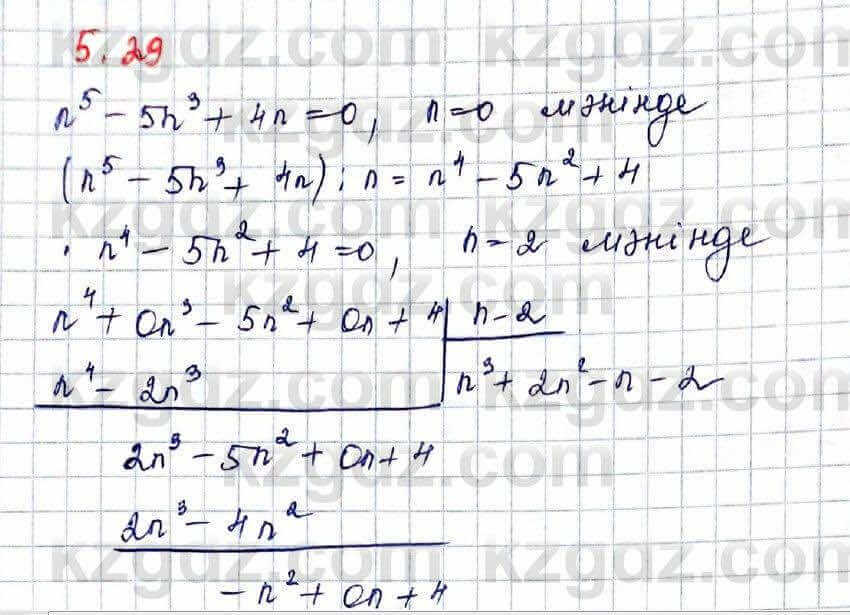 5.29
n⁵ - 5n³ + 4n = 0, n = 0 мәнінде
(n⁵ - 5n³ + 4n) : n = n⁴ - 5n² + 4
. n⁴ - 5n² + 4 = 0, n = 2 мәнінде
n⁴ + 0n³ - 5n² + 0n + 4 | n - 2
n⁴ - 2n³ | n³ + 2n² - n - 2
2n³ - 5n² + 0n + 4
2n³ - 4n²
- n² + 0n + 4
kzgdz.com